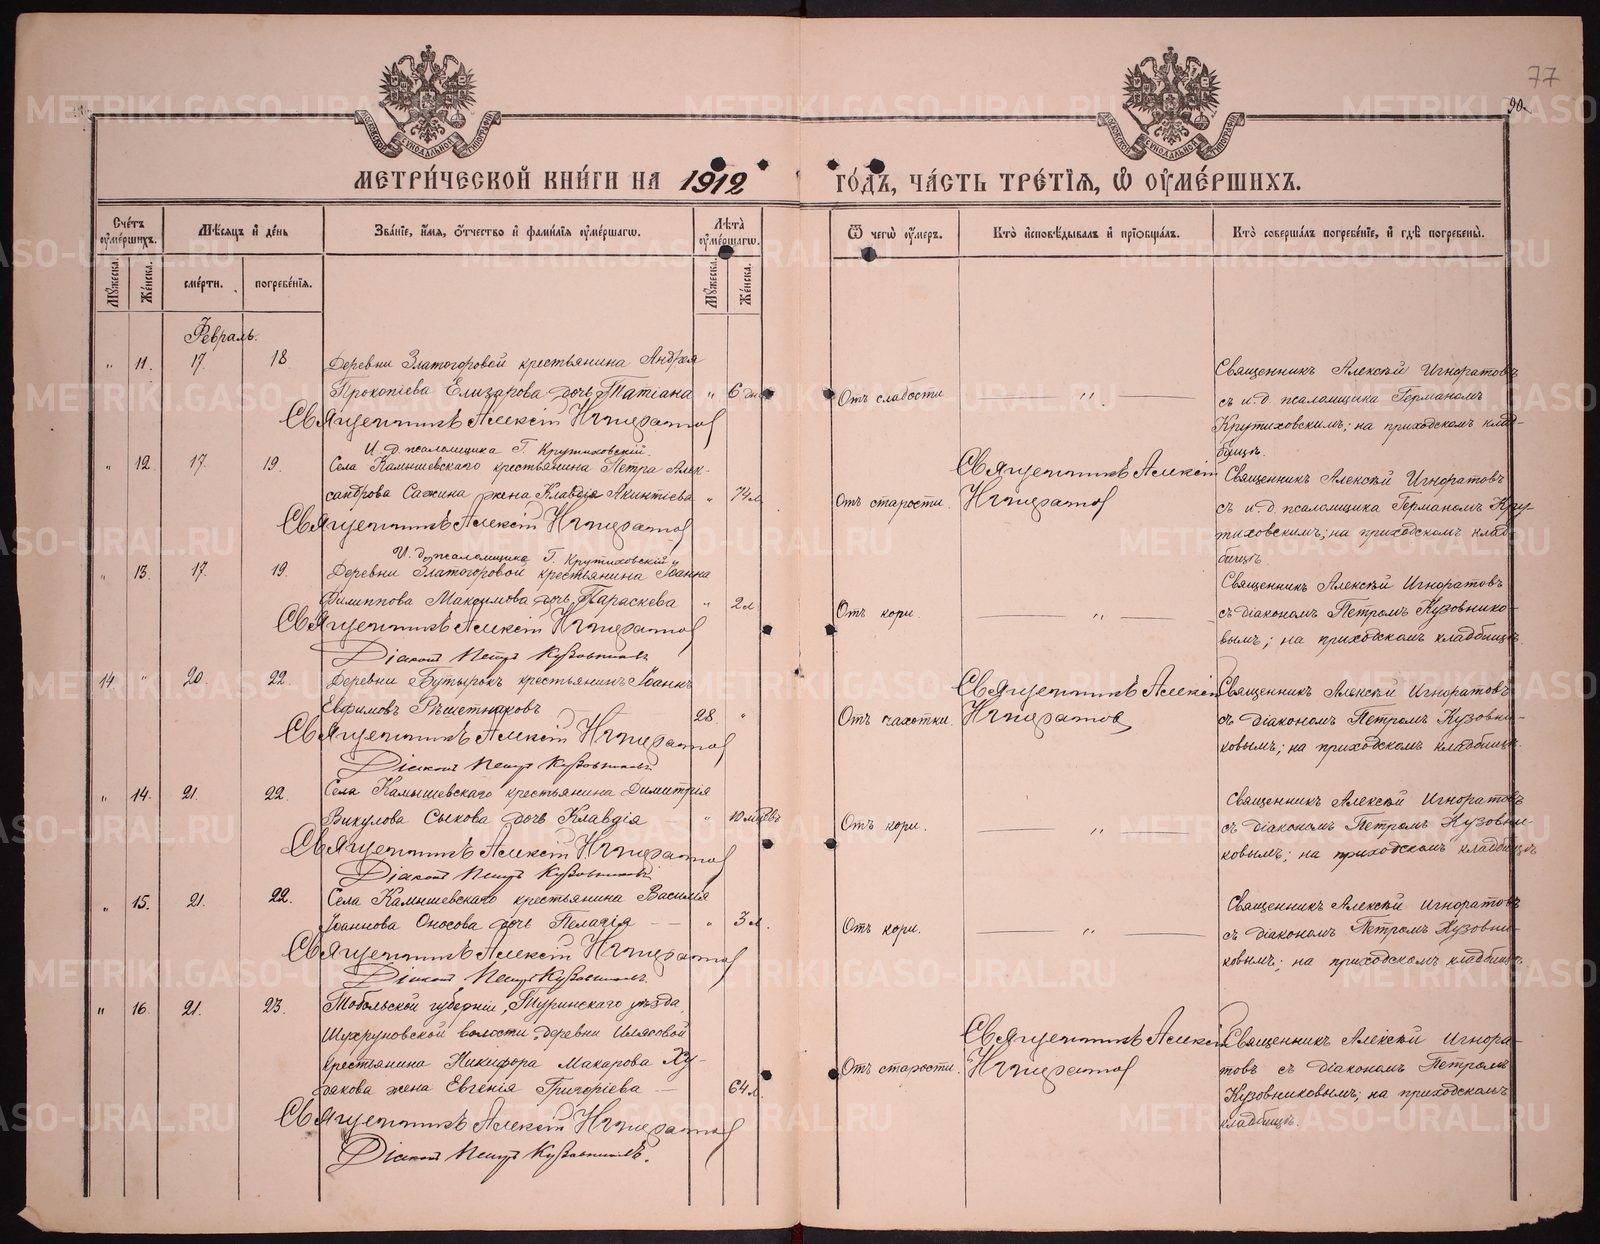 77
90.
МЕТРИ́ЧЕСКОЙ КНИ́ГИ НА 1912 ГО́ДЪ, ЧА́СТЬ ТРЕ́ТІѦ, Ѡ ОУ҆МЕ́РШИХЪ.
Сче́тъ оу҆ме́ршихъ.
Мꙋ́жеска.
Же́нска.
Мѣ́сѧцъ и҆ де́нь
сме́рти.
погребе́нїѧ.
Зва́нїе, и҆́мѧ, ѻ҆́тчество и҆ фами́лїѧ оу҆ме́ршагѡ.
Лѣ́та оу҆ме́ршагѡ.
Мꙋ́жеска.
Же́нска.
Ѿ чегѡ̀ оу҆́меръ.
Кто̀ и҆сповѣ́дывалъ и҆ прїѡбща́лъ.
Кто̀ соверша́лъ погребе́нїе, и҆ гдѣ̀ погребены̀.
Февраль.
" 11. 17. 18 Деревни Златогоровой крестьянина Андрея
Прокопіева Елизарова дочь Татіана " 6 дн
Священникъ Алексій Игноратов
Отъ слабости ,,
Священникъ Алексѣй Игноратовъ
съ и.д. псаломщика Германомъ
Крутиховскимъ; на приходскомъ клад-
бищѣ.
И. д. псаломщика Г. Крутиховскій.
" 12. 17. 19. Села Камышевскаго крестьянина Петра Алек-
сандрова Сажина жена Клавдія Акинтіева " 74 л
Священникъ Алексій Игноратов
Отъ старости.
Священникъ Алексій
Игноратов
Священникъ Алексѣй Игноратовъ
съ и.д. псаломщика Германомъ Кру-
тиховскимъ; на приходскомъ клад-
бищѣ.
И. д. псаломщика Г. Крутиховскій
" 13. 17. 19. Деревни Златогоровой крестьянина Іоанна
Филиппова Максимова дочь Параскева " 2 л
Священникъ Алексій Игноратов
Діаконъ Петръ Кузовниковъ
Отъ кори. ,,
Священникъ Алексѣй Игноратовъ
съ діакономъ Петромъ Кузовнико-
вымъ; на приходскомъ кладбищѣ.
14. " 20. 22. Деревни Бутырокъ крестьянинъ Іоаннъ
Евфимовъ Рѣшетниковъ 28. "
Священникъ Алексій Игноратов
Діаконъ Петръ Кузовниковъ
Отъ чахотки.
Священникъ Алексій
Игноратов
Священникъ Алексѣй Игноратовъ
съ діакономъ Петромъ Кузовни-
ковымъ; на приходскомъ кладбищѣ.
" 14. 21. 22. Села Камышевскаго крестьянина Димитрія
Викулова Сыкова дочь Клавдія " 10 мѣсвъ
Священникъ Алексій Игноратов
Діаконъ Петръ Кузовниковъ
Отъ кори. ,,
Священникъ Алексѣй Игноратовъ
съ діакономъ Петромъ Кузовни-
ковымъ; на приходскомъ кладбищѣ
" 15. 21. 22. Села Камышевскаго крестьянина Василія
Іоаннова Оносова дочь Пелагія " 3 л.
Священникъ Алексій Игноратов
Діаконъ Петръ Кузовниковъ
Отъ кори. ,,
Священникъ Алексѣй Игноратовъ
съ діакономъ Петромъ Кузовни-
ковымъ; на приходскомъ кладбищѣ
" 16. 21. 23. Тобольской губерніи, Туринскаго уѣзда,
волости деревни
крестьянина Никифора Макарова Ху-
дякова жена Евгенія Григоріева 64 л.
Священникъ Алексій Игноратов
Діаконъ Петръ Кузовниковъ.
Отъ старости.
Священникъ Алексій
Игноратов
Священникъ Алексѣй Игнора-
товъ съ діакономъ Петромъ
Кузовниковымъ; на приходскомъ
кладбищѣ.